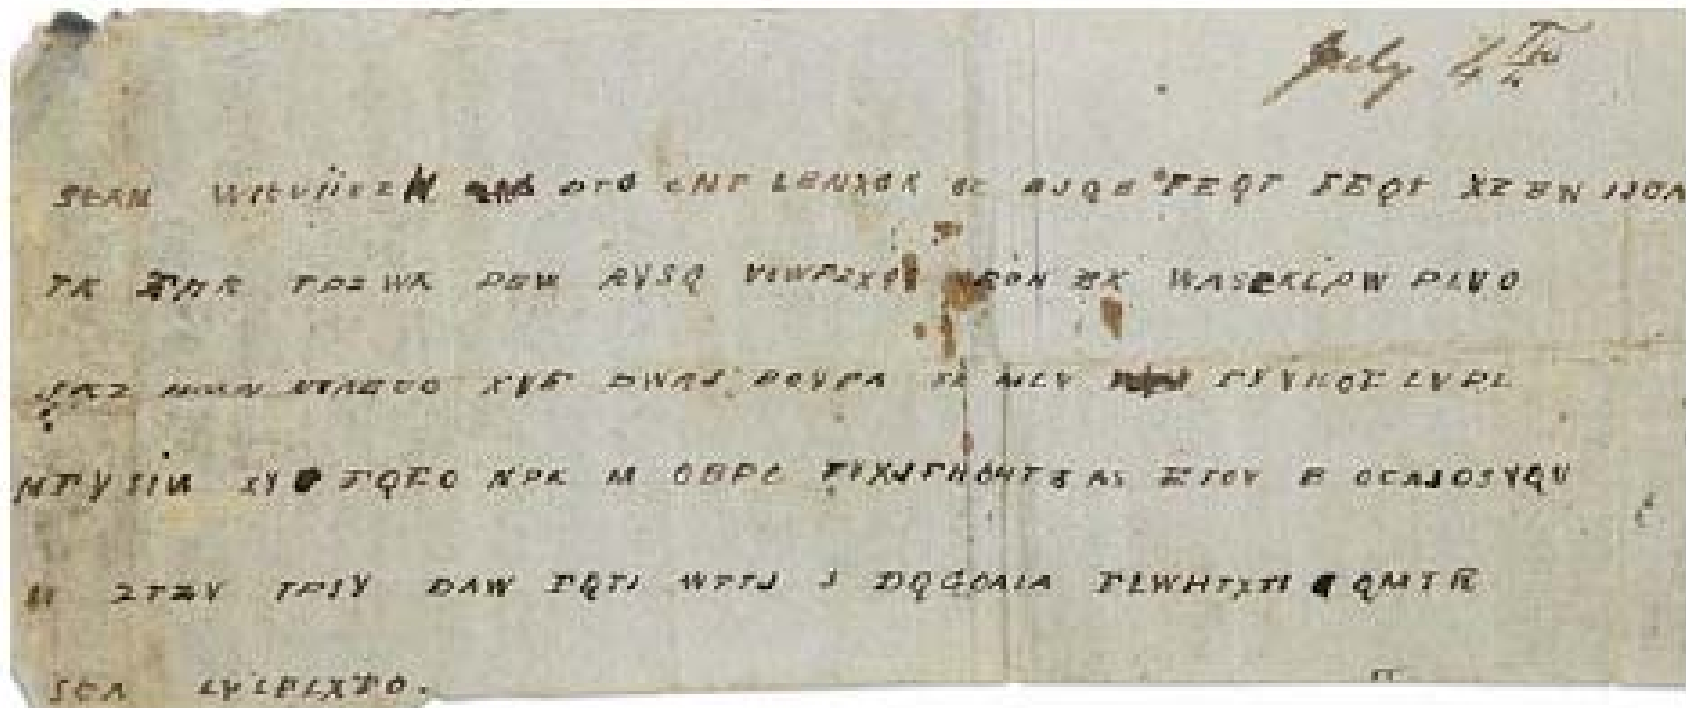 July 4th
SEAN WIEUIIUZH DTG CNP LBNXGK OZ BJQB FEQT FEQT XZBW JJOA
TK FHR TPZWK PBW RYSQ VOWPZXGG OEPF EK WASFKIPW PLVO
JKZ HMN NVAEUD XYE DWRJ BOYPA SX MLV FYYRDE LVPL
MFYSIN XY FQEO NPK M OBPC FYXJFHOHT AS ETOV B OCAJDSVQU
M ZTZV TPJY DAW FQTI WTTJ J DQGOAIA FLWHTXTI QMTR
SEA LVLFLXFO.